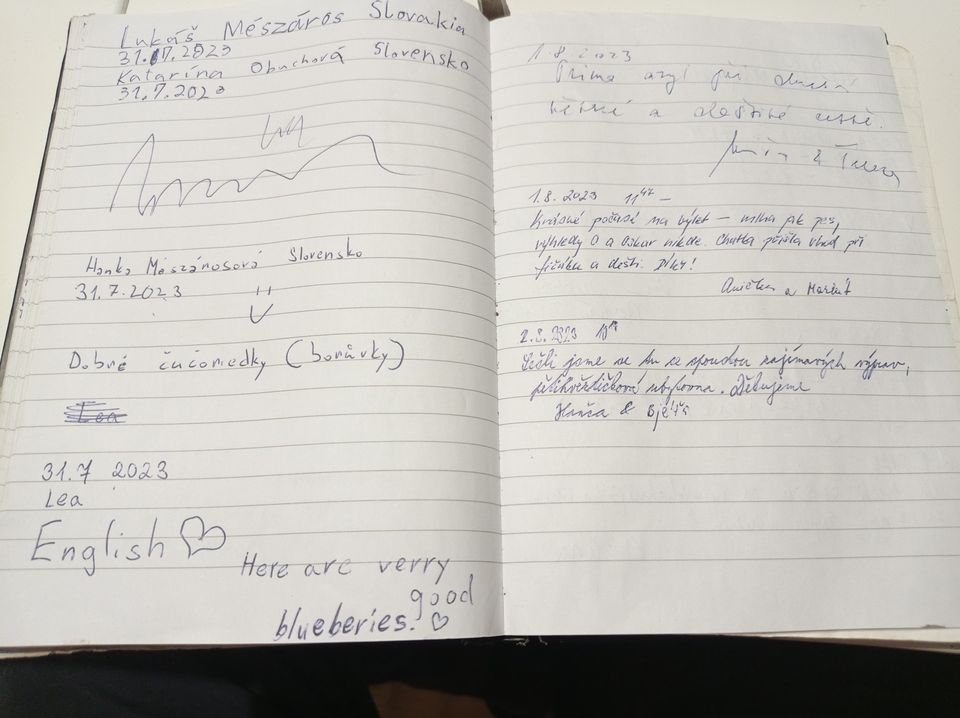 Lukáš Mészáros Slovakia
31.07.2023
Katarína Obuchová Slovensko
31.7.2023
Hanka Mészárosová Slovensko
31.7.2023
Dobré čučoriedky (borůvky)
Lea
31.7 2023
Lea
English ♡
Here are verry
good
blueberies. ♡
1.8.2023
Prima azyl při
a deštivé
1.8.2023 11⁴⁷ –
Krásné počasí na výlet – mlha jak pes,
výhledy 0 a Oskar nikde. Chatka přišla vhod při
fičáku a dešti. Díky!
Anička a
2.8.2023
jsme se zajímavých výprav,
Děkujeme
&